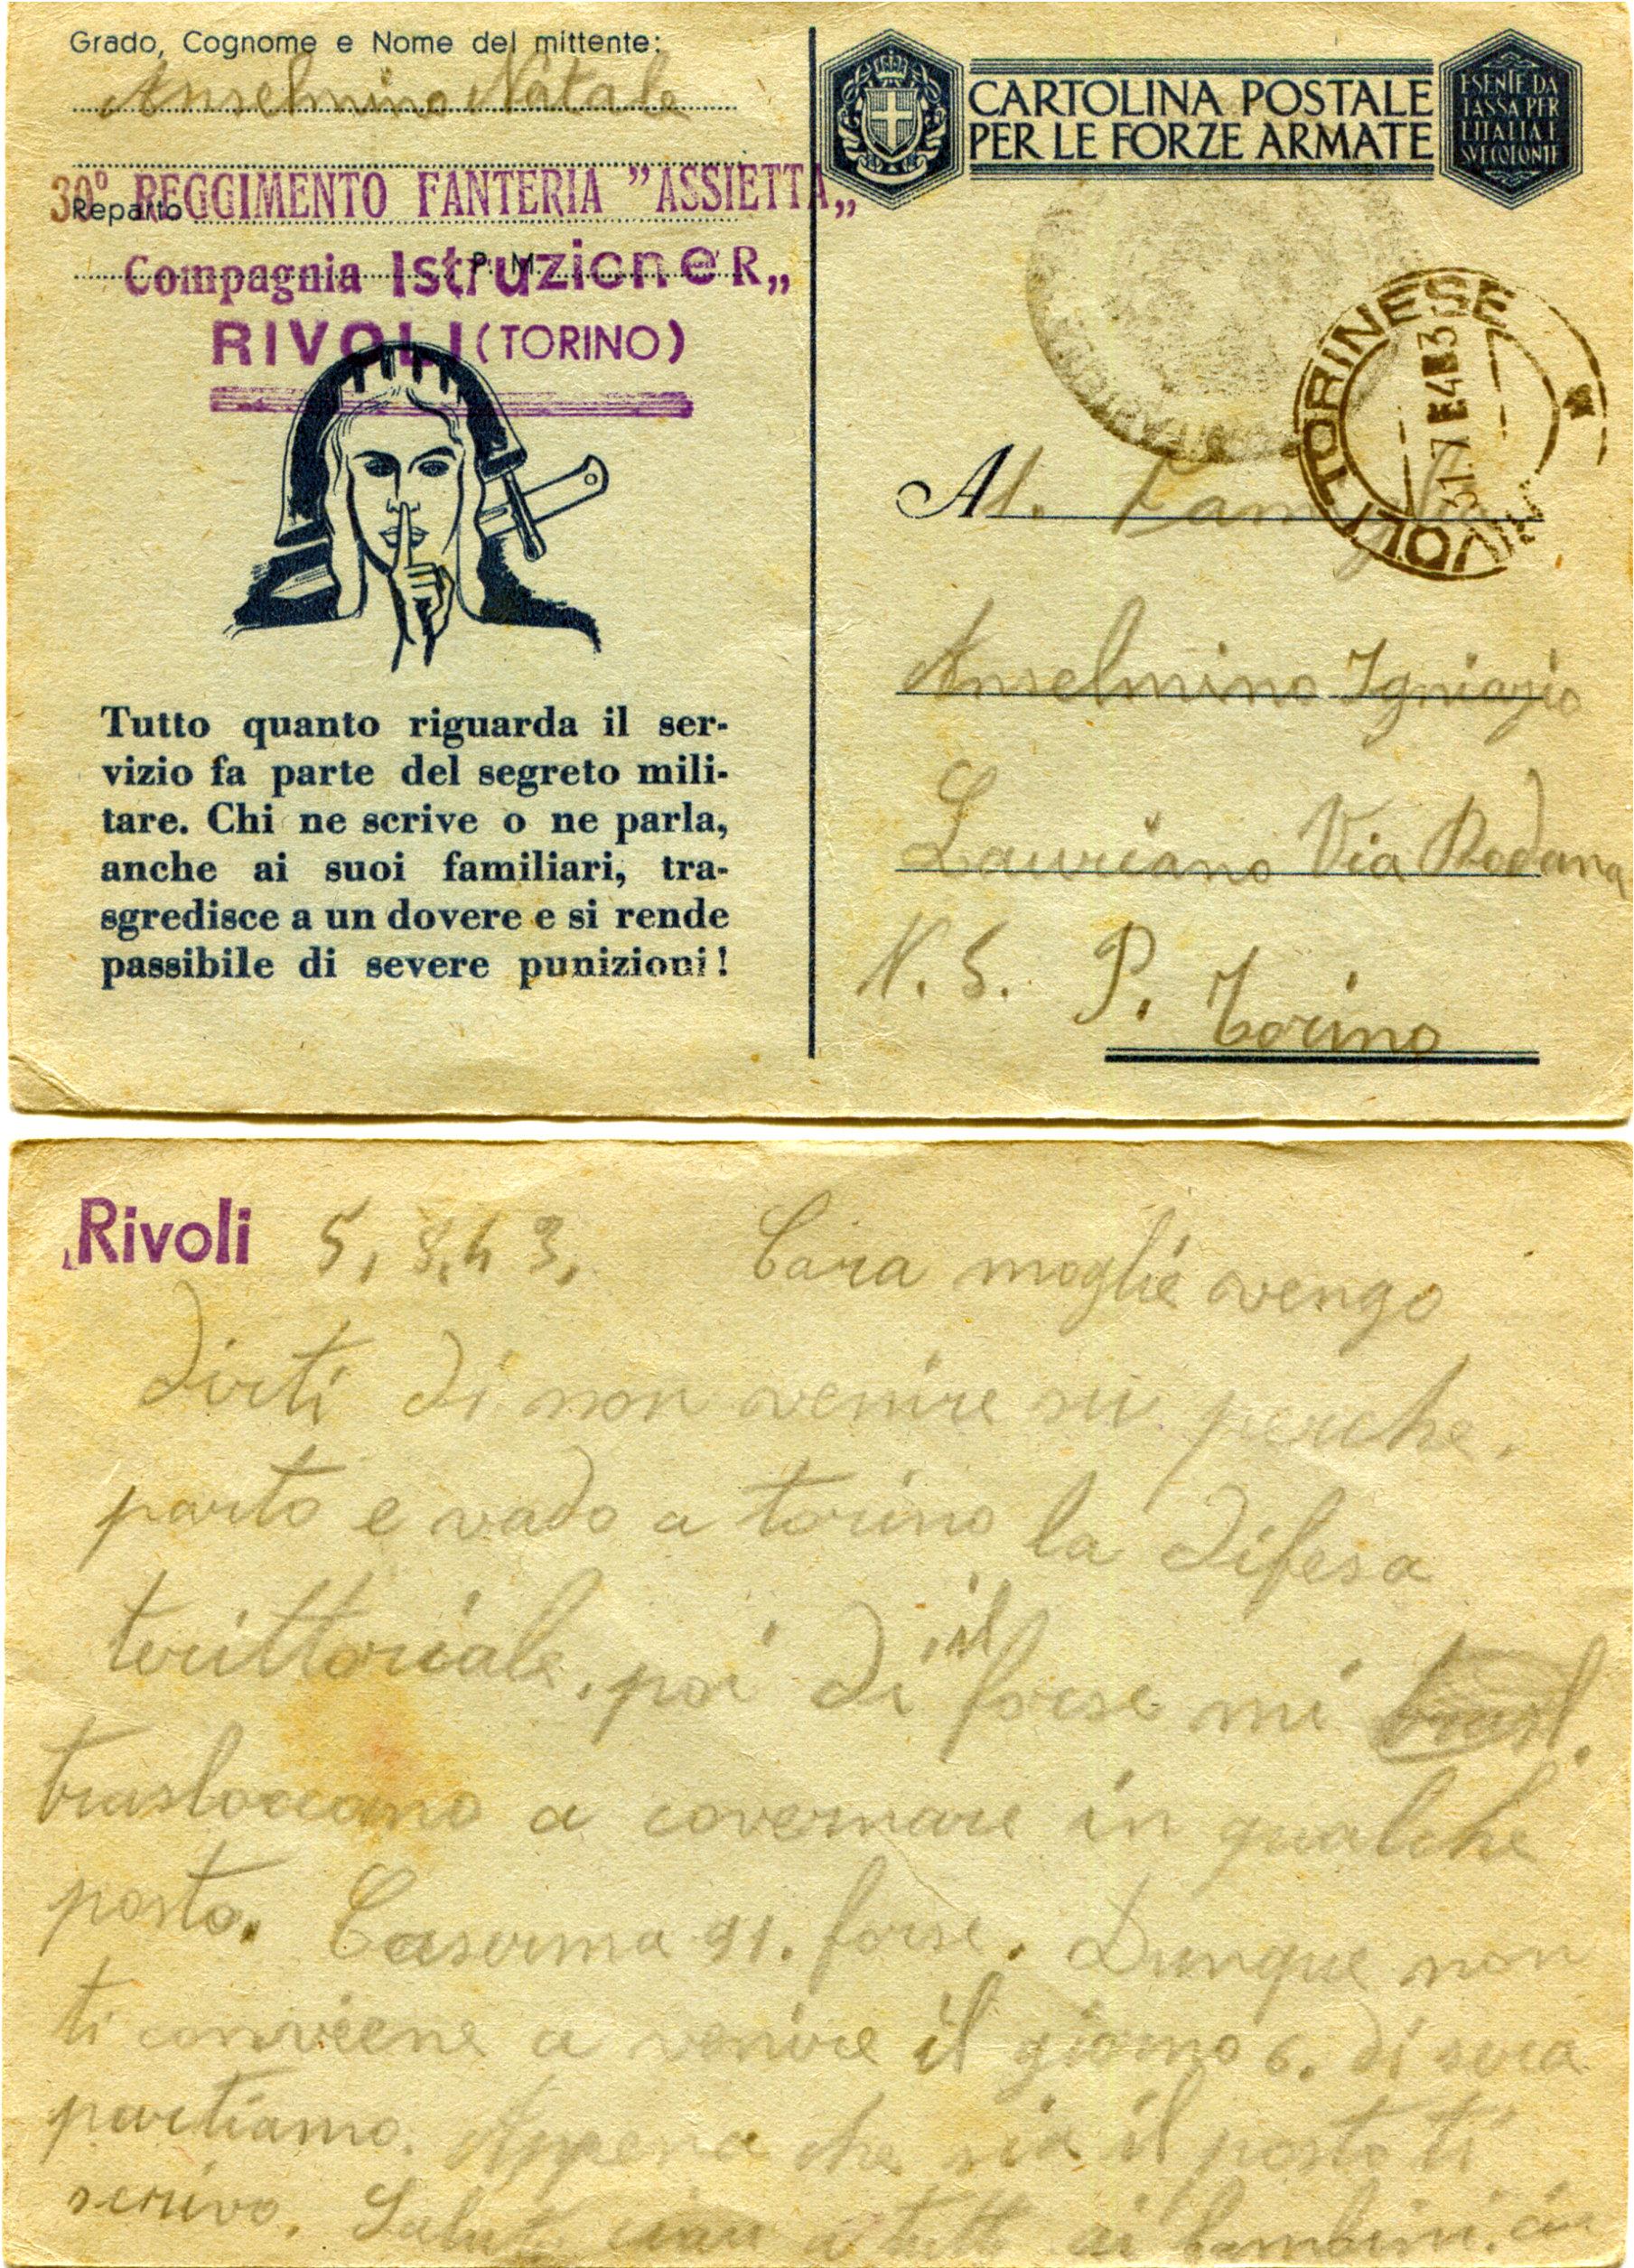 Grado, Cognome e Nome del mittente:
Anselmino Natale
30° REGGIMENTO FANTERIA "ASSIETTA„
Reparto
Compagnia Istruzione R„
P. M.
RIVOLI (TORINO)
Tutto quanto riguarda il ser-
vizio fa parte del segreto mili-
tare. Chi ne scrive o ne parla,
anche ai suoi familiari, tra-
sgredisce a un dovere e si rende
passibile di severe punizioni!
CARTOLINA POSTALE
PER LE FORZE ARMATE
ESENTE DA
TASSA PER
L'ITALIA E
SUE COLONIE
RIVOLI TORINESE
31.7 43
Al. Famiglia
Anselmino Igniazio
Lauriano Via Rodana
N. S. P. Torino
Rivoli 5, 8, 43, Cara moglie vengo
dirti di non venire su perche.
parto e vado a torino la difesa
terittoriale. poi di il forse mi trasl.
traslocano a covernare in qualche
posto. Caserma 91. forse. Dunque non
ti conviene a venire il giorno 6. di sera
partiamo. Appena che sia il posto ti
scrivo. Saluti ciau a tutti ai bambini. ciau